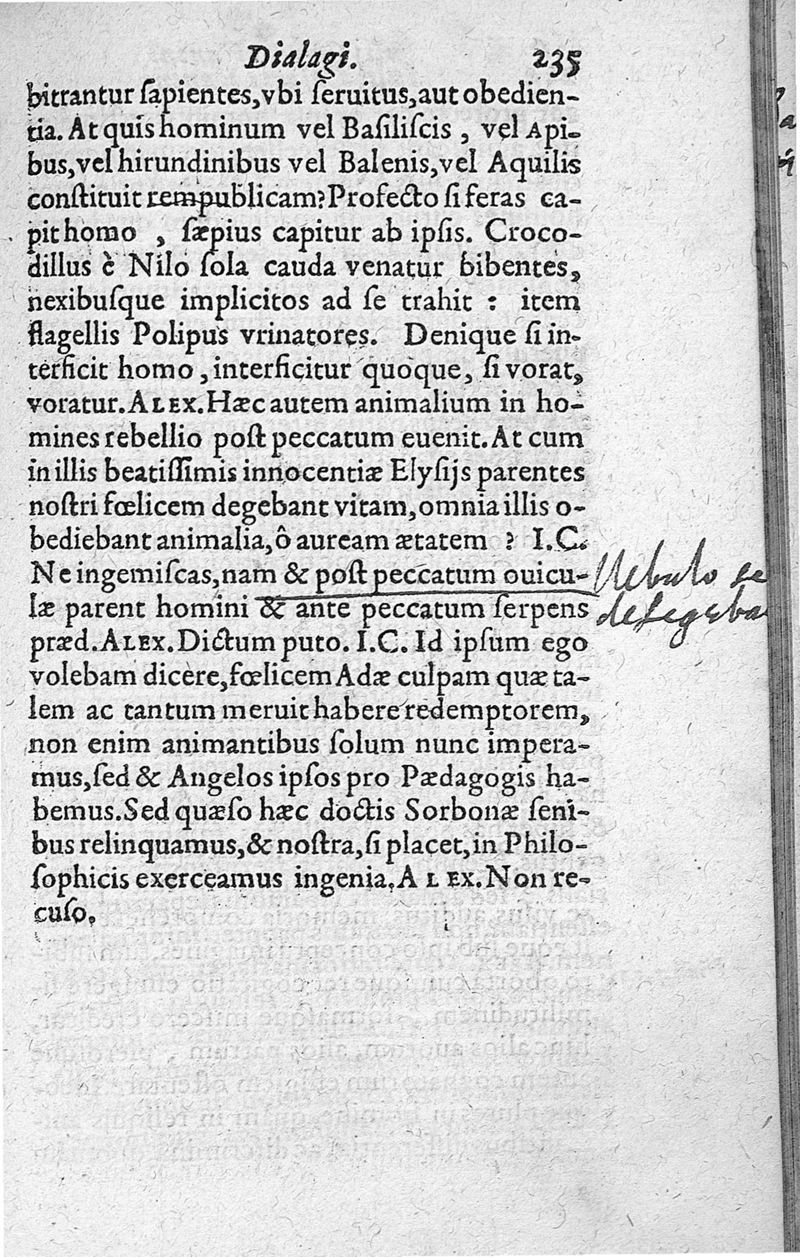 Dialagi. 235
bitrantur ſapientes,vbi ſeruitus,aut obedien-
tia. At quis hominum vel Baſiliſcis , vel Api-
bus,vel hirundinibus vel Balenis,vel Aquilis
conſtituit rempublicam? Profecto ſi feras ca-
pit homo , ſæpius capitur ab ipſis. Croco-
dillus è Nilo ſola cauda venatur bibentes,
nexibuſque implicitos ad ſe trahit : item
flagellis Polipus vrinatores. Denique ſi in-
terficit homo ,interficitur quoque, ſi vorat,
voratur. ALEX. Hæc autem animalium in ho-
mines rebellio poſt peccatum euenit. At cum
in illis beatiſſimis innocentiæ Elyſijs parentes
noſtri fœlicem degebant vitam,omnia illis o-
bediebant animalia,ô auream ætatem ? I.C.
Ne ingemiſcas,nam & poſt peccatum ouicu-
læ parent homini & ante peccatum ſerpens
Nebulo se
detegeba
præd. ALEX. Dictum puto. I.C. Id ipſum ego
volebam dicere,fœlicem Adæ culpam quæ ta-
lem ac tantum meruit habere redemptorem,
non enim animantibus ſolum nunc impera-
mus,ſed & Angelos ipſos pro Pædagogis ha-
bemus. Sed quæſo hæc doctis Sorbonæ ſeni-
bus relinquamus,& noſtra,ſi placet,in Philo-
ſophicis exerceamus ingenia. ALEX. Non re-
cuſo.